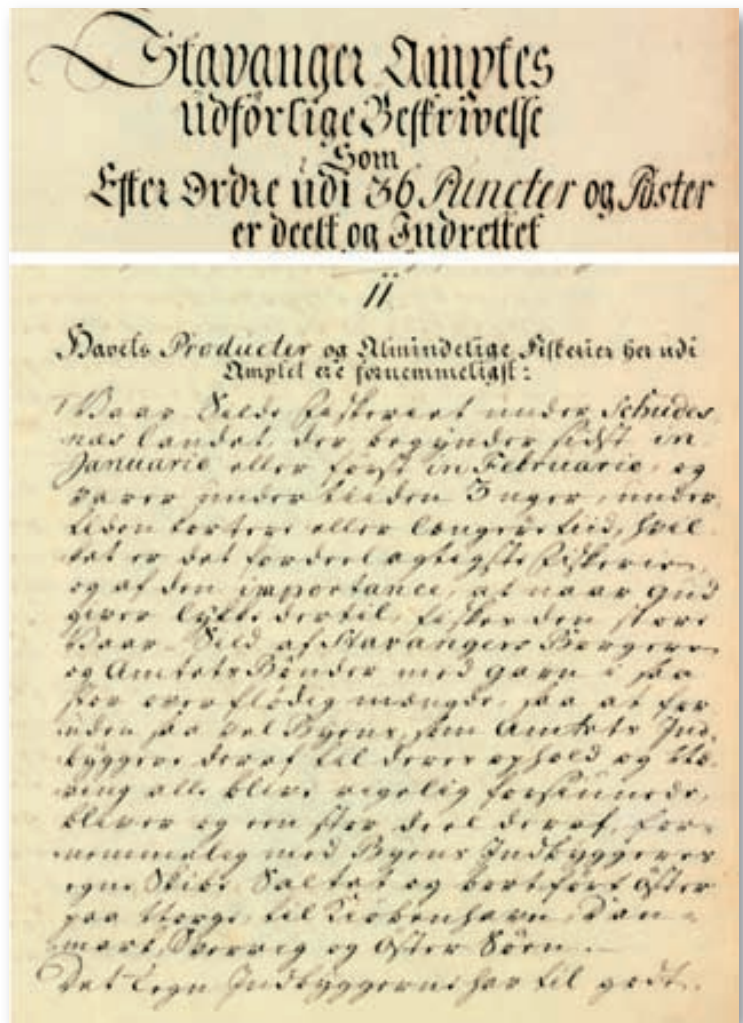 Stavanger Amptes
udförlige Beskrivelse
Som
Efter Ordre udi 36 Puncter og Poster
er deelt og Indrettet
11
Havets Producter og Almindelige Fiskerier her udi
Amptet ere fornemmeligst:
Vaar Silde fiskeriet under Schudes
næs Landet, der begynder sidst in
Januario eller först in Februario, og
varer under tiden 3 uger, under
tiden kortere eller længere tiid, hvil
ket er det fordeelagtigste fiskerie,
og af den importance, at naar Gud
giver lykke dertil, fisker den store
Vaar Sild af Stavangers Borgere
og Amtets Bönder med garn i saa
stor overflödig mængde, saa at for
uden saa vel Byens, som Amtets Ind
byggere deraf til deres ophold og Næ
ring alle blive rigelig forsiunede,
bliver og een stor deel deraf, for
nemmelig med Byens Indbyggeres
egne Skibe Saltet og bortfört Öster
paa Norge, til Kiöbenhavn, Dan
mark, Sverrig og Öster Söen.
Det Tegn Indbyggerne har til godt